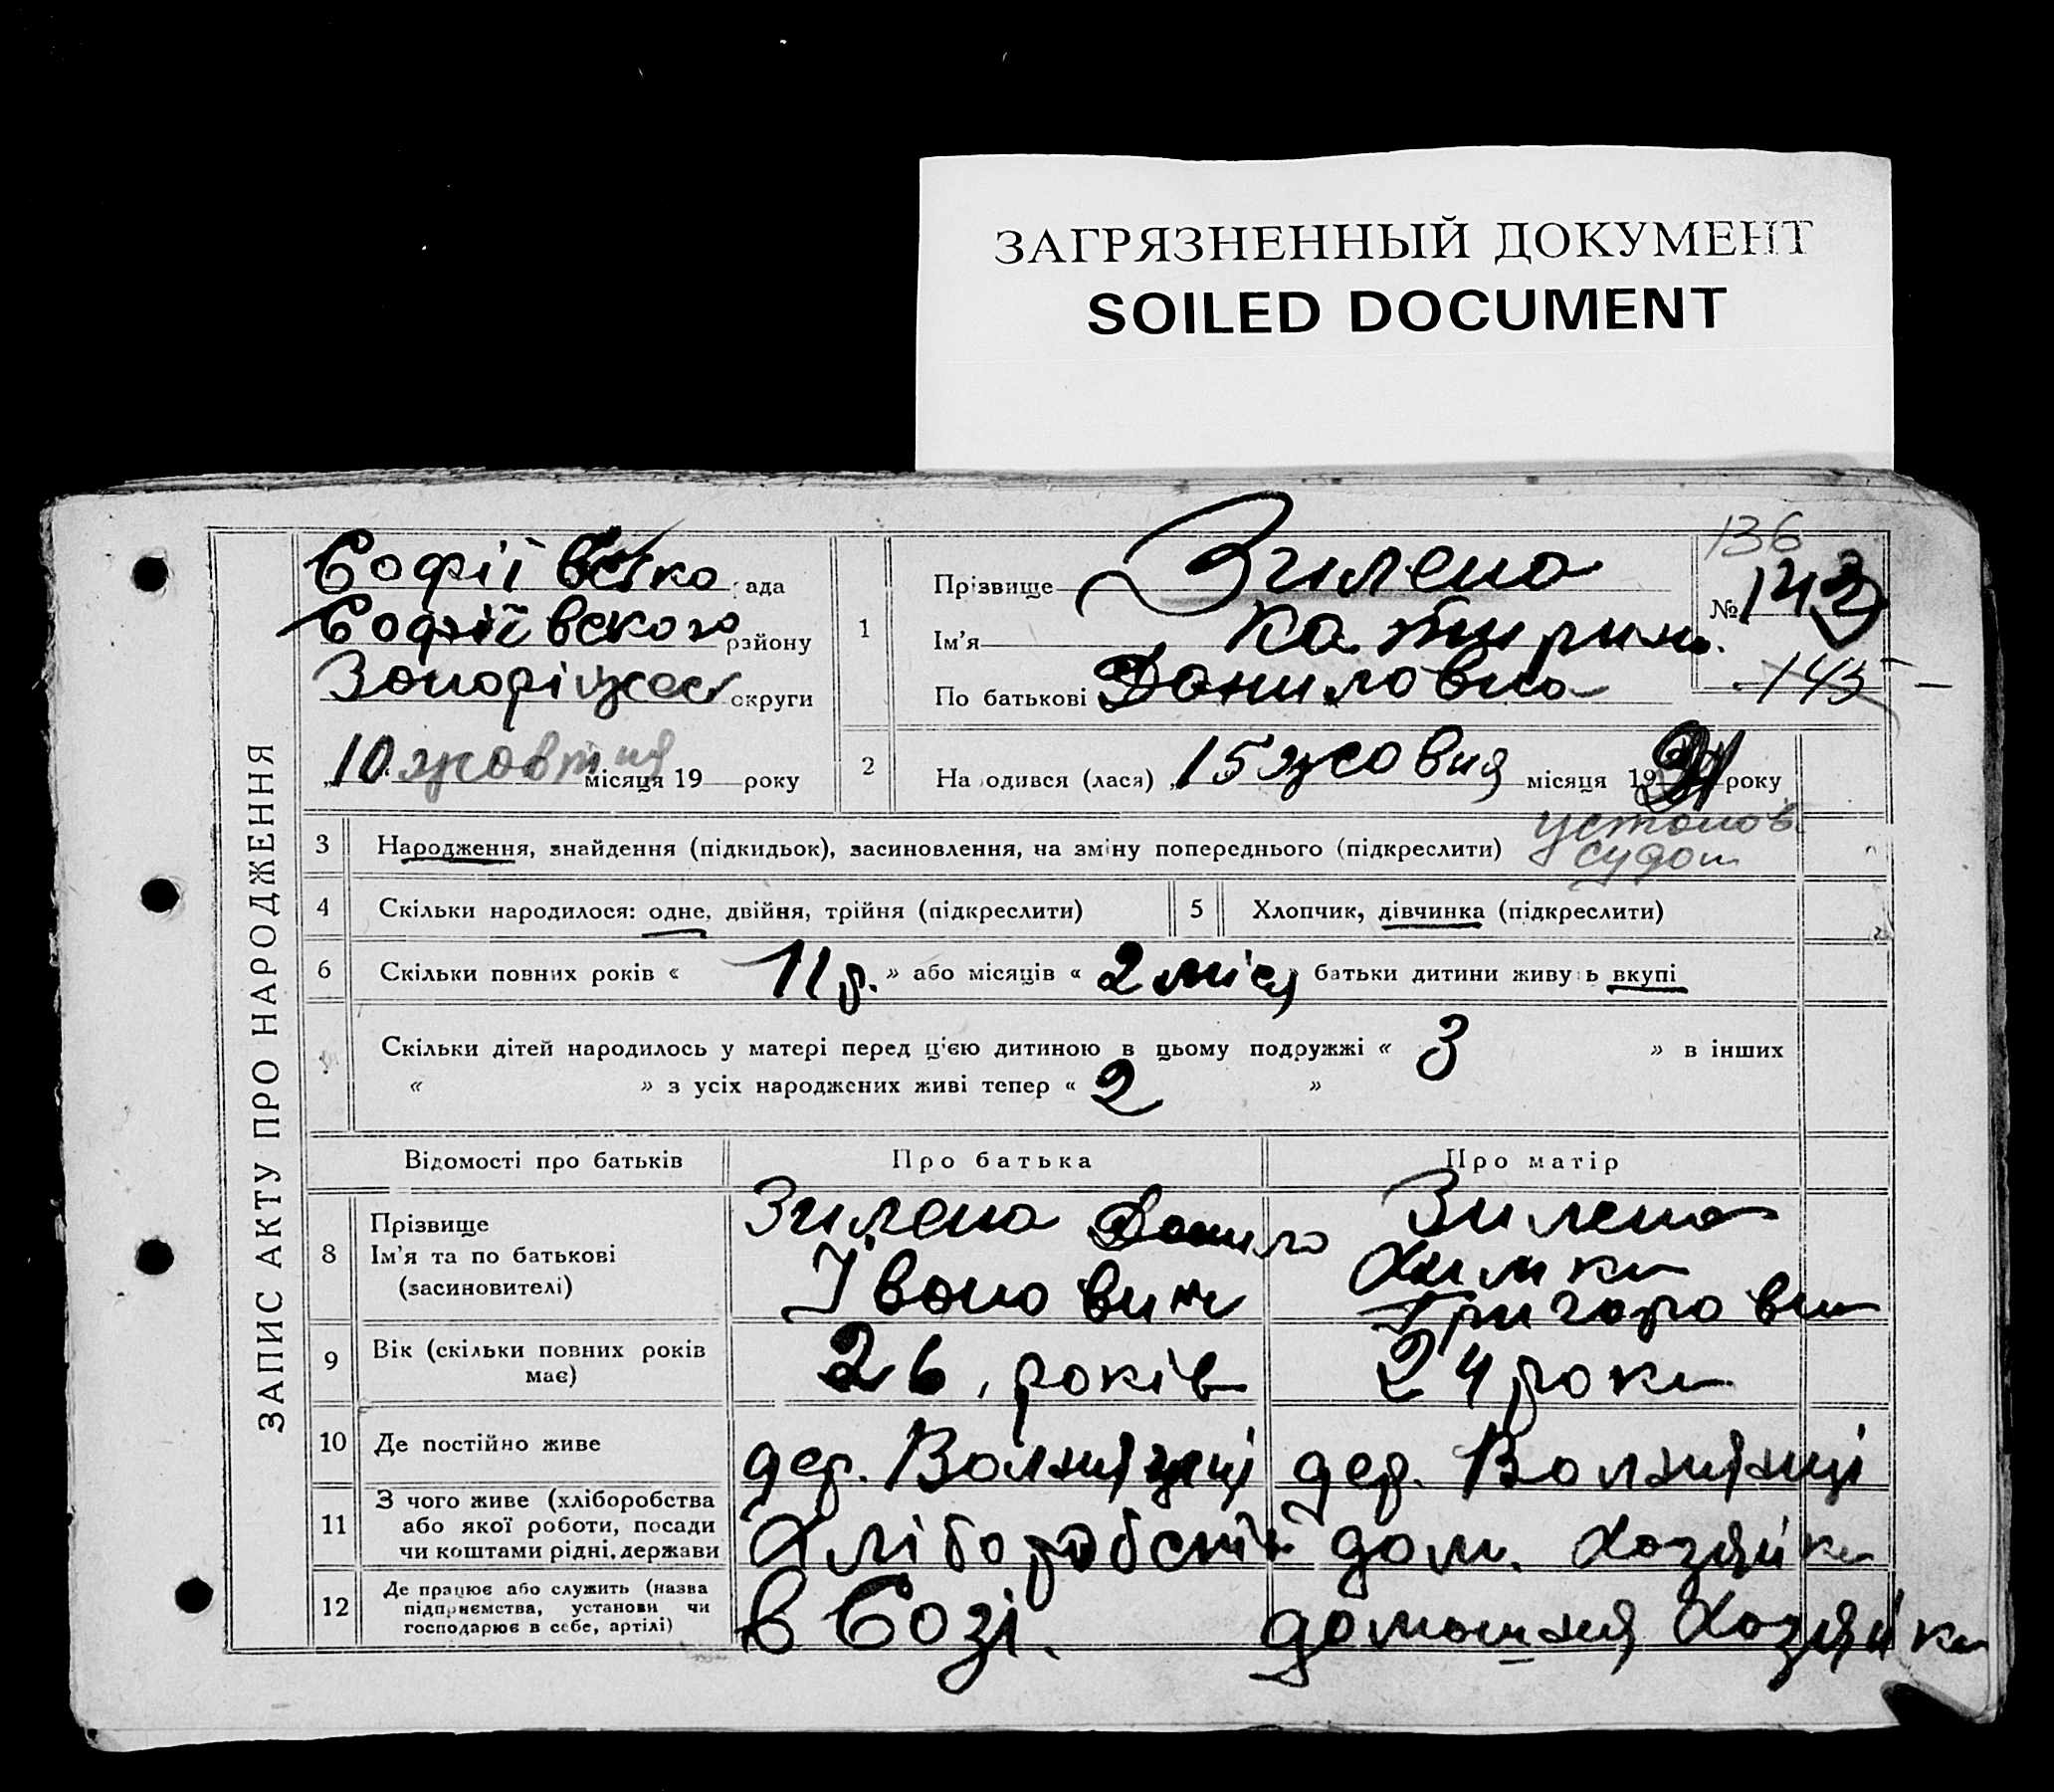 ЗАГРЯЗНЕННЫЙ ДОКУМЕНТ
SOILED DOCUMENT
ЗАПИС АКТУ ПРО НАРОДЖЕННЯ
Софіївско рада
Софіївского району
округи
10 жовтня місяця 19 року
136
№ 142
145
1
Прізвище Зилена
Ім'я
По батькові Даниловна
2
На одився (лася) 15 жовня місяця 19 31 року
установ
судом
3 Народження, знайдення (підкидьок), засиновлення, на зміну попереднього (підкреслити)
4 Скільки народилося: одне, двійня, трійня (підкреслити)
5 Хлопчик, дівчинка (підкреслити)
6 Скільки повних років « 11 р. » або місяців « 2 міся » батьки дитини живу ь вкупі
Скільки дітей народилось у матері перед ц'єю дитиною в цьому подружжі « 3 » в інших
« » з усіх народжених живі тепер « 2 »
Відомості про батьків Про батька Про матір
8 Прізвище
Ім'я та по батькові
(засиновителі)
Зилена Данило
Іванович
Зилена
Химка
Григоровн
9 Вік (скільки повних років
має)
26, років
24 роки
10 Де постійно живе
дер.
дер.
11 З чого живе (хліборобства
або якої роботи, посади
чи коштами рідні, держави
дом. хозяйка
12 Де працює або служить (назва
підприємства, установи чи
господарює в себе, артілі)
в Созі.
домашняя хозяйка